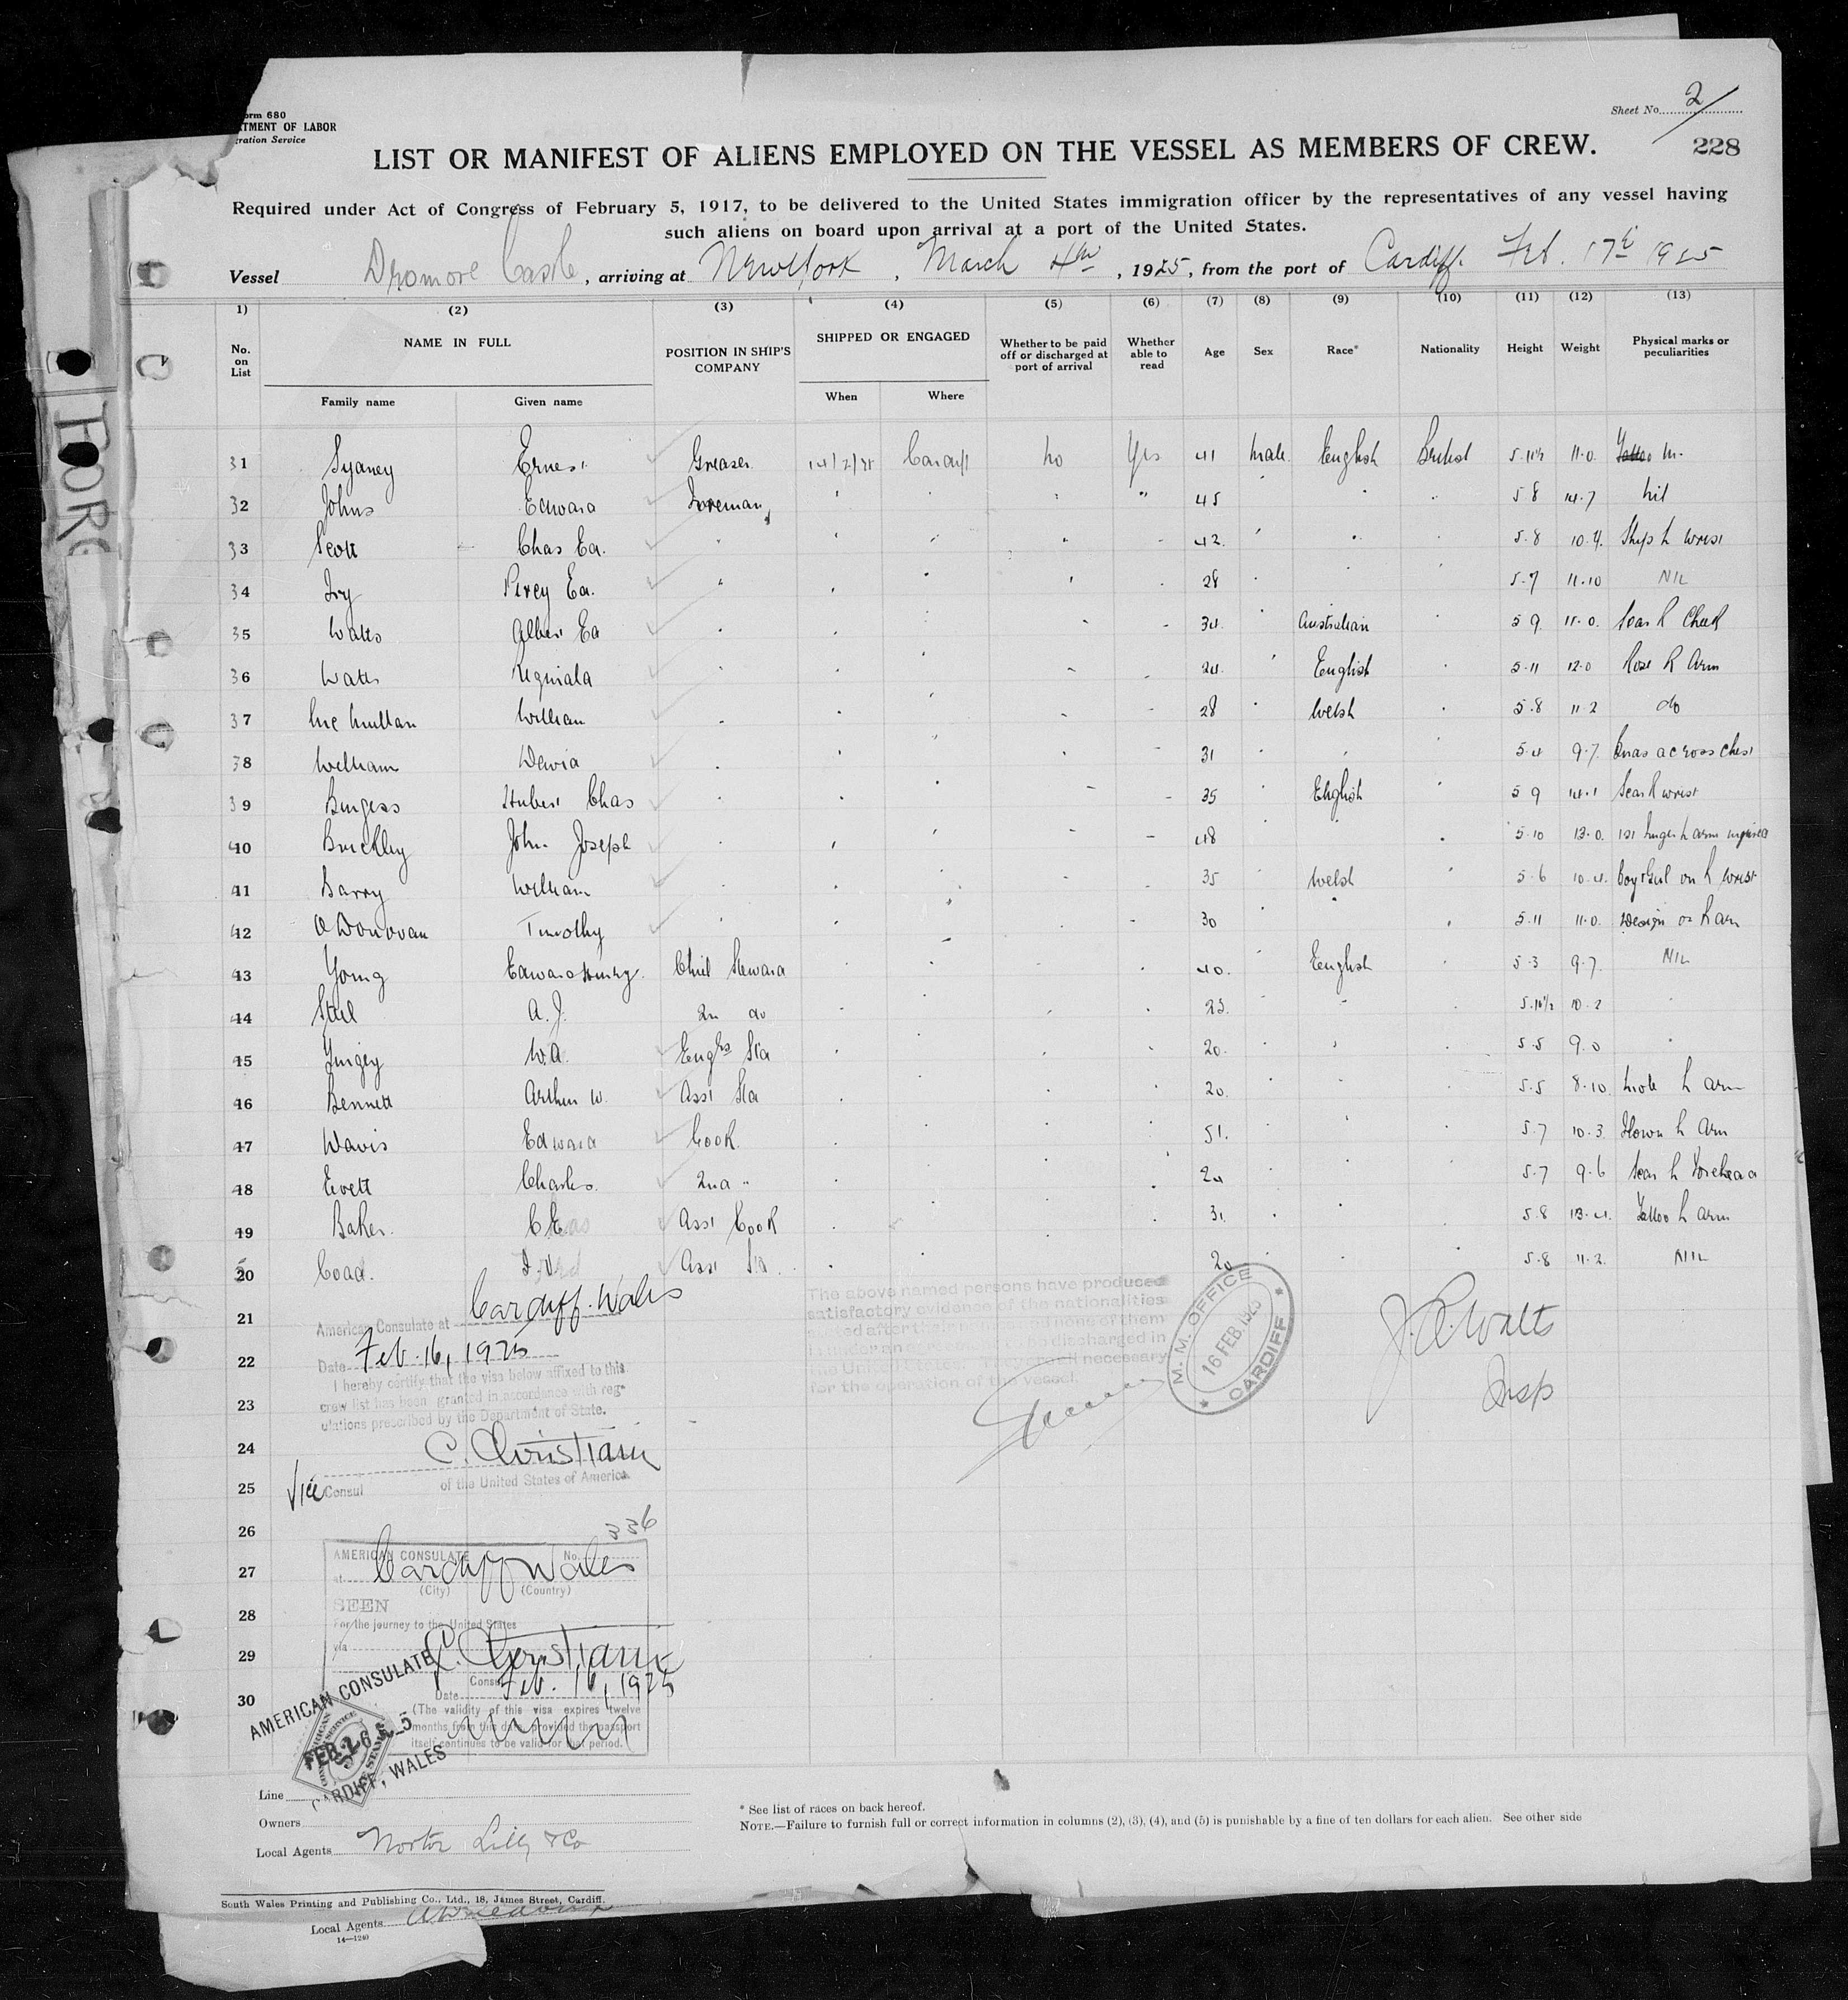 Form 680
TMENT OF LABOR
gration Service
Sheet No. 2
228
LIST OR MANIFEST OF ALIENS EMPLOYED ON THE VESSEL AS MEMBERS OF CREW.
Required under Act of Congress of February 5, 1917, to be delivered to the United States immigration officer by the representatives of any vessel having
such aliens on board upon arrival at a port of the United States.
Vessel Dromore Castle, arriving at New York, March 4th, 1925, from the port of Cardiff. Feb. 17th 1925
1) (2) (3) (4) (5) (6) (7) (8) (9) (10) (11) (12) (13)
No. on List NAME IN FULL POSITION IN SHIP'S COMPANY SHIPPED OR ENGAGED Whether to be paid off or discharged at port of arrival Whether able to read Age Sex Race* Nationality Height Weight Physical marks or peculiarities
Family name Given name When Where
31 Sydney Ernest Greaser 14/2/25 Cardiff no Yes 41 male English British 5.11½ 11.0. Tattoo m.
32 Johns Edward Foreman " 45 5 8 14.7 nil
33 Scott Chas Ed. 42. 5.8 10.4. Ships L wrist
34 Ivy Percy Ed. 28 5.7 11.10 NIL
35 Watts Albert Ed 34. Australian 5 9. 11.0. Scar R Cheek
36 Watts Reginald 24. English 5.11 12.0 Rose R Arm
37 Mc Mullan William 28 Welsh 5.8 11.2 do
38 William David 31 5.4 9.7. across chest
39 Burgess Hubert Chas 35 English 5 9 14.1 Scar R wrist
40 Brickley John Joseph 48 5.10 13.0. 1st finger L arm injured
41 Barry William 35 Welsh 5.6 10.4. boy & girl on L wrist
42 O Donovan Timothy 30 5.11 11.0. Design on R arm
43 Young Edward Henry. Chief Steward 40. English 5.3 9.7. NIL
44 Steel A.J. 2n do 5.10½ 10.2
45 W.A. Engrs Std 20. 5.5 9.0
46 Bennett Arthur W. Asst Std 20. 5.5 8.10. mole L arm
47 Davis Edward Cook. 51. 5.7 10.3. Flower L Arm
48 Evett Charles. 2nd " 24 5.7 9.6 Scar L Forehead
49 Baker. C E Asst Cook 31. 5.8 13.4. Tattoo L arm
50 Coad. Asst Std. 20 5.8 11.2. NIL
21
22
23
24
25
26
27
28
29
30
American Consulate at Cardiff. Wales
Date Feb. 16, 1925
I hereby certify that the visa below affixed to this
crew list has been granted in accordance with reg-
ulations prescribed by the Department of State.
C. Christiani
Vice Consul of the United States of America.
The above named persons have produced
satisfactory evidence of the nationalities
for the operation of the vessel.
M. M. OFFICE
16 FEB. 1925
CARDIFF
J.R. Watts
Insp
336
AMERICAN CONSULATE No.
at Cardiff Wales
(City) (Country)
SEEN
For the journey to the United States
via
C. Christiani
Consul
Date Feb. 16, 1925
(The validity of this visa expires twelve
months from this date provided the passport
itself continues to be valid for that period.
AMERICAN CONSULATE
FEB 16
CARDIFF, WALES
Line
Owners
Local Agents Norton Lilly & Co
* See list of races on back hereof.
NOTE.—Failure to furnish full or correct information in columns (2), (3), (4), and (5) is punishable by a fine of ten dollars for each alien. See other side
South Wales Printing and Publishing Co., Ltd., 18, James Street, Cardiff.
Local Agents
14—1240
FOR